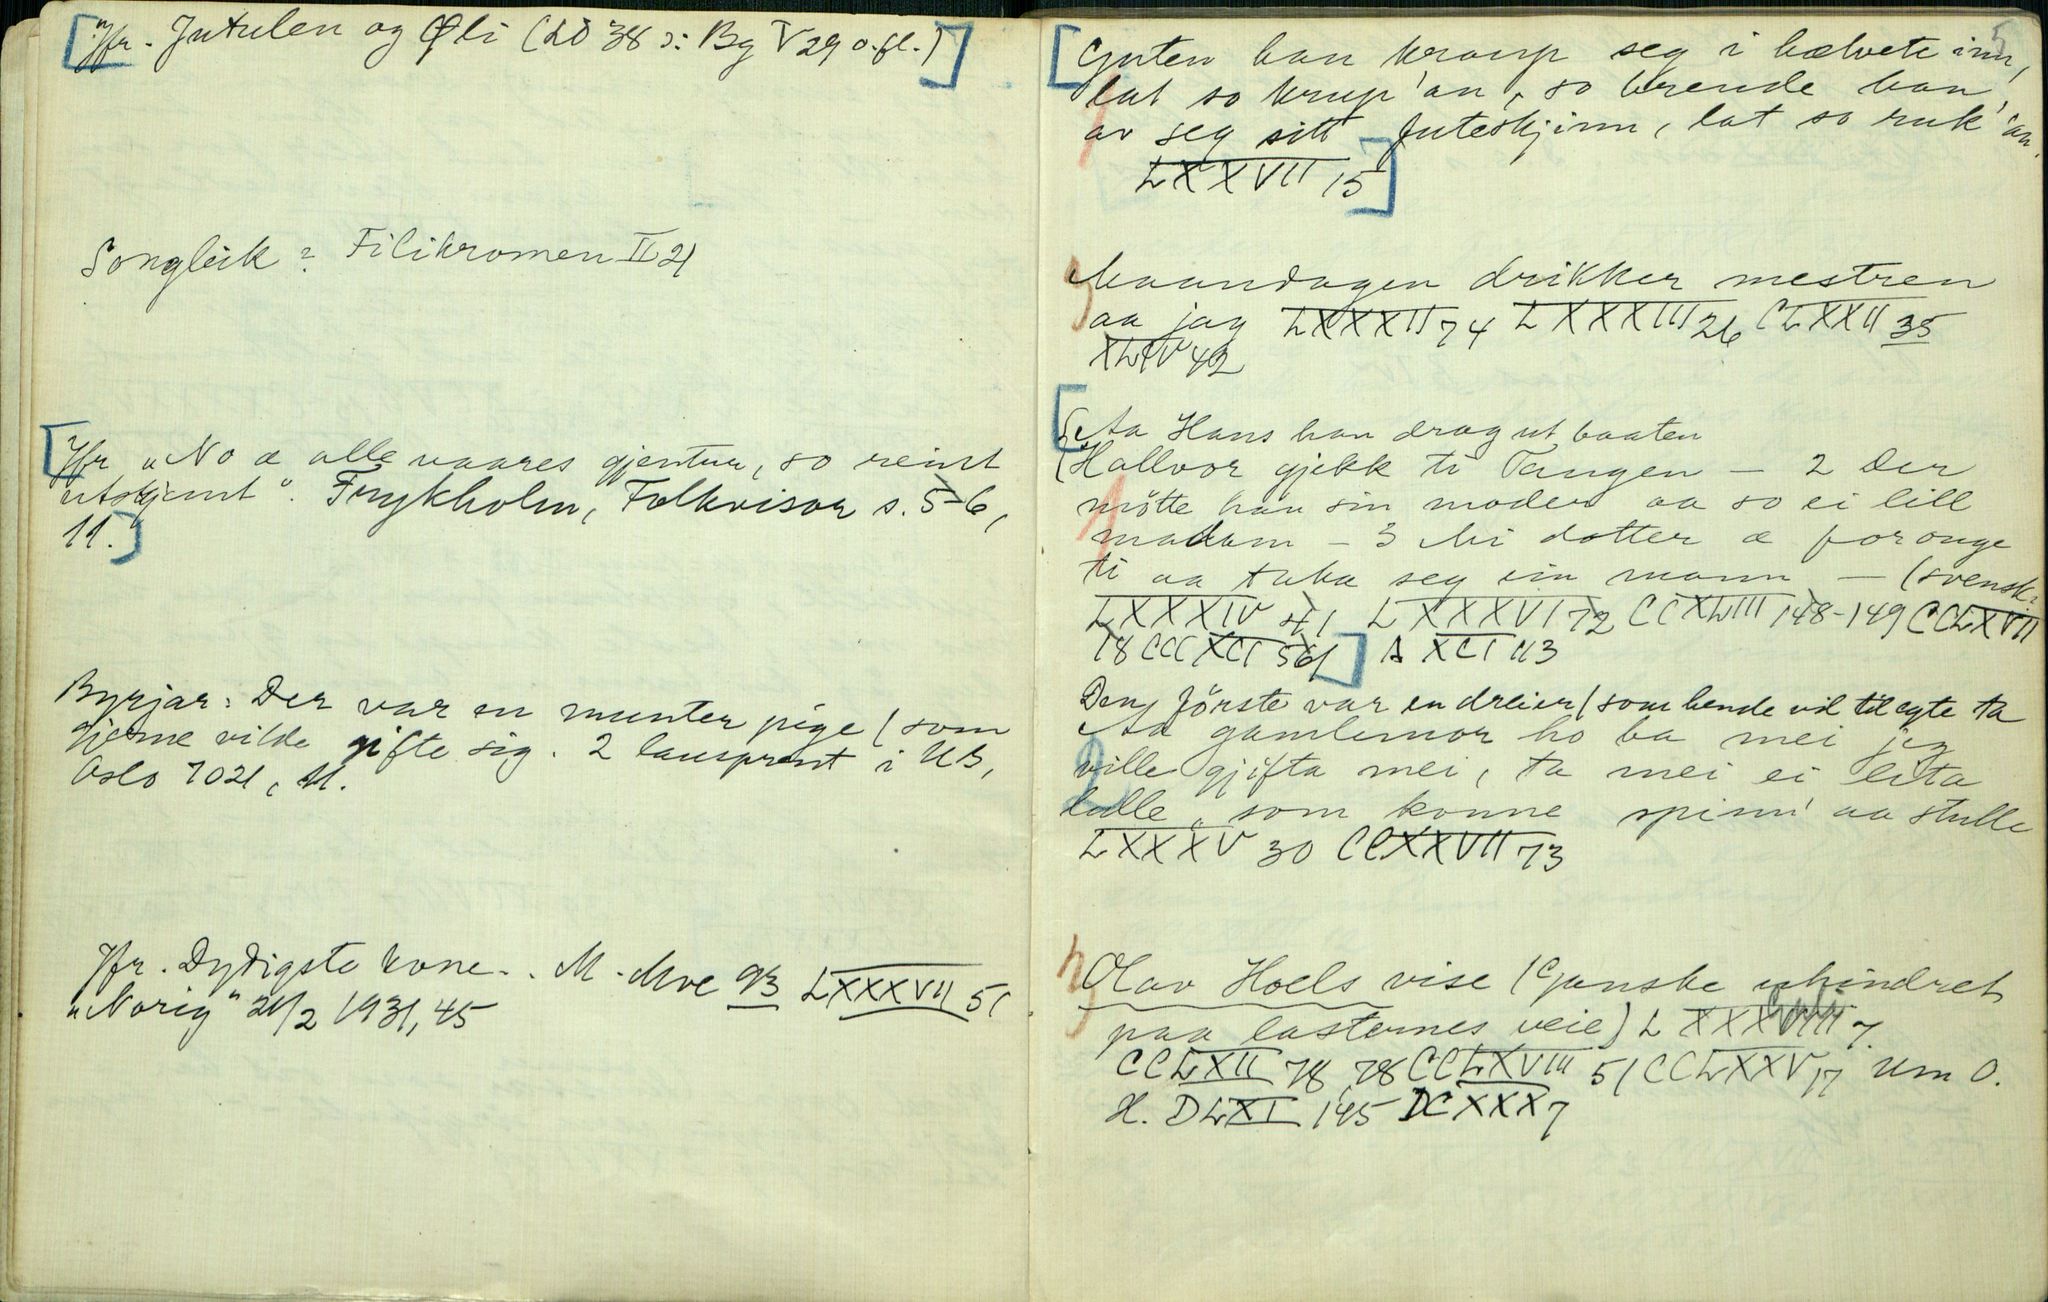 [Jfr. Jutulen og Øli (LO 38 ɔ: Bg V 29 o.fl.)]
Songleik? Filikromen II 21
[Jfr „No æ alle vaares gjentur, so reint
utskjemt". Frykholm, Folkvisor s. 5-6,
11.]
Byrjar: Der var en munter pige / som
gjerne vilde gifte sig. 2 lausprent i UB,
Oslo 7021, M.
Jfr. Dydigste kone.. M. Moe 93 LXXXVII 51
„Norig" 21/2 1931, 45
5
[Guten han kraup seg i hælvete inn,
lat so krup'an, so brende han
av seg sitt juteskjinn, lat so ruk'an.
LXXVII 15]
Maandagen drikker mestren
aa jag LXXXII 74 LXXXIII 26 CLXXII 35
XLIV 42
[Aa Hans han drog ut baaten
(Hallvor gjekk ti Tangen — 2 Der
mötte han sin moder aa so ei lill
madam — 3 Mi dotter æ for onge
ti aa taka seg ein mann — (svensk?
LXXXIV 41 LXXXVI 72 CCXLIII 148-149 CCLXVII
18 CCCXCI 561] A XCI 113
Den förste var en dreier / som hende vil til egte ta
Aa gamlemor ho ba mei jeg
ville gjifta mei, ta mei ei lita
lulle, som konne spinn' aa stulle
LXXXV 30 CCXXVII 73
Olav Hoels vise (Ganske uhindret
paa lasternes veie) LXXXVIII 7.
CCLXII 78, 78 CCLXVIII 51 CCLXXV 17 Um O.
H. DLXI 145 DCXXX 7